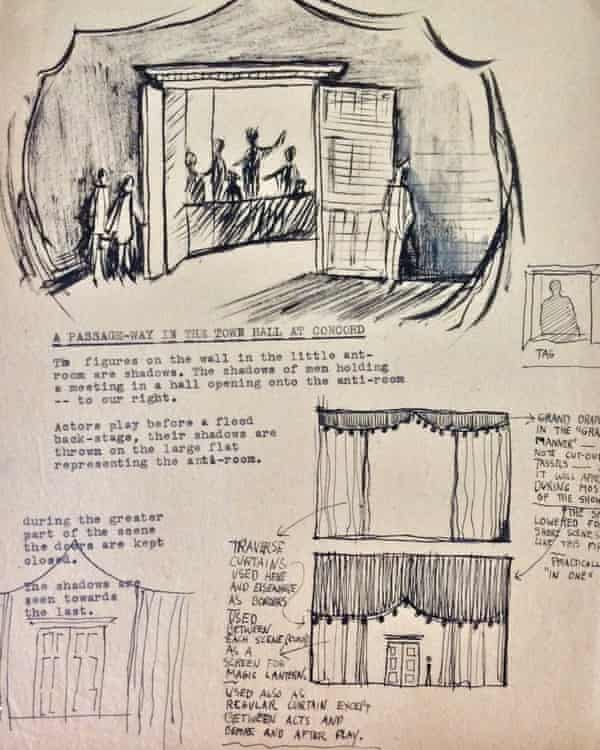 A PASSAGE-WAY IN THE TOWN HALL AT CONCORD
The figures on the wall in the little ant-
room are shadows. The shadows of men holding
a meeting in a hall opening onto the anti-room
-- to our right.
Actors play before a flood
back-stage, their shadows are
thrown on the large flat
representing the anti-room.
during the greater
part of the scene
the doors are kept
closed.
The shadows are
seen towards
the last.
TAG
GRAND DRAP
IN THE "GRA
MANNER" —
NOTE CUT-OU
TASSELS —
IT WILL APP
DURING MOS
OF THE SHOW
THE S
LOWERED FO
SHORT SCENES
LIKE THIS
PRACTICALL
"IN ONE"
TRAVERSE
CURTAINS
USED HERE
AND ELSEWHERE
AS BORDERS
USED
BETWEEN
EACH SCENE
AS A
SCREEN FOR
MAGIC LANTERN.
USED ALSO AS
REGULAR CURTAIN EXCEPT
BETWEEN ACTS AND
BEFORE AND AFTER PLAY.